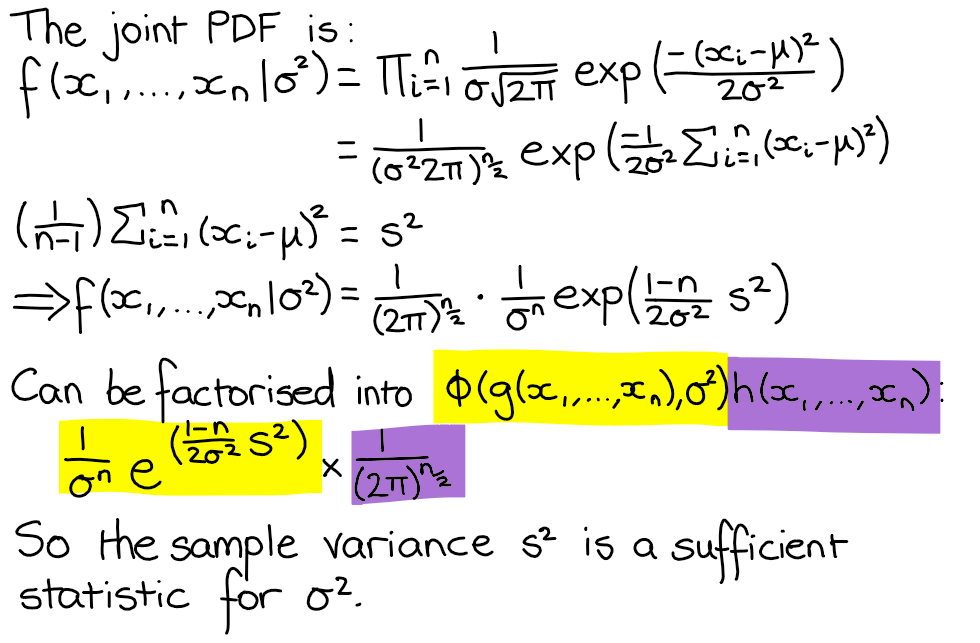 The joint PDF is:
f(x₁,...,xₙ|σ²) = ∏ᵢ₌₁ⁿ 1/(σ√2π) exp(-(xᵢ-μ)²/2σ²)
= 1/(σ²2π)^(n/2) exp(-1/2σ² ∑ᵢ₌₁ⁿ(xᵢ-μ)²)
(1/(n-1)) ∑ᵢ₌₁ⁿ (xᵢ-μ)² = s²
⟹ f(x₁,...,xₙ|σ²) = 1/(2π)^(n/2) · 1/σⁿ exp((1-n)/2σ² s²)
Can be factorised into ϕ(g(x₁,...,xₙ),σ²)h(x₁,...,xₙ):
1/σⁿ e^((1-n)/2σ² s²) × 1/(2π)^(n/2)
So the sample variance s² is a sufficient
statistic for σ².